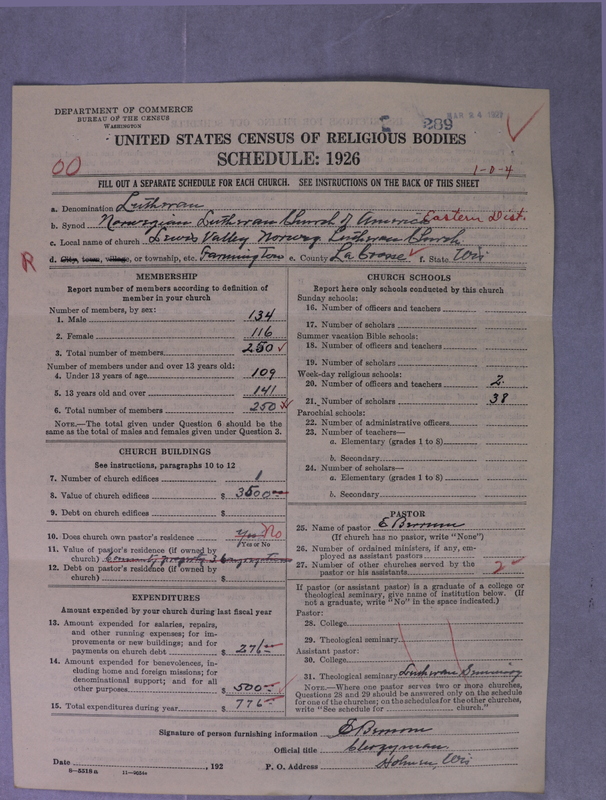 DEPARTMENT OF COMMERCE
BUREAU OF THE CENSUS
WASHINGTON
289
MAR 24 192
UNITED STATES CENSUS OF RELIGIOUS BODIES
SCHEDULE: 1926
00
1-0-4
FILL OUT A SEPARATE SCHEDULE FOR EACH CHURCH. SEE INSTRUCTIONS ON THE BACK OF THIS SHEET
a. Denomination Lutheran
b. Synod Norwegian Lutheran Church of America Eastern Dist.
c. Local name of church Lewis Valley Norweg. Lutheran Church
R
d. City, town, village, or township, etc. Farmington e. County La Crosse f. State Wis
MEMBERSHIP
Report number of members according to definition of
member in your church
Number of members, by sex:
1. Male 134
2. Female 116
3. Total number of members 250
Number of members under and over 13 years old:
4. Under 13 years of age 109
5. 13 years old and over 141
6. Total number of members 250
NOTE.—The total given under Question 6 should be the
same as the total of males and females given under Question 3.
CHURCH BUILDINGS
See instructions, paragraphs 10 to 12
7. Number of church edifices 1
8. Value of church edifices $ 3500
9. Debt on church edifices $
10. Does church own pastor's residence Yes No
(Yes or No)
11. Value of pastor's residence (if owned by
church) Community property 3 Congregations
12. Debt on pastor's residence (if owned by
church) $
EXPENDITURES
Amount expended by your church during last fiscal year
13. Amount expended for salaries, repairs,
and other running expenses; for im-
provements or new buildings; and for
payments on church debt $ 276
14. Amount expended for benevolences, in-
cluding home and foreign missions; for
denominational support; and for all
other purposes $ 500
15. Total expenditures during year $ 776
CHURCH SCHOOLS
Report here only schools conducted by this church
Sunday schools:
16. Number of officers and teachers
17. Number of scholars
Summer vacation Bible schools:
18. Number of officers and teachers
19. Number of scholars
Week-day religious schools:
20. Number of officers and teachers 2
21. Number of scholars 38
Parochial schools:
22. Number of administrative officers
23. Number of teachers—
a. Elementary (grades 1 to 8)
b. Secondary
24. Number of scholars—
a. Elementary (grades 1 to 8)
b. Secondary
PASTOR
25. Name of pastor E
(If church has no pastor, write "None")
26. Number of ordained ministers, if any, em-
ployed as assistant pastors
27. Number of other churches served by the
pastor or his assistants 2
If pastor (or assistant pastor) is a graduate of a college or
theological seminary, give name of institution below. (If
not a graduate, write "No" in the space indicated.)
Pastor:
28. College
29. Theological seminary
Assistant pastor:
30. College
31. Theological seminary Lutheran Seminary
NOTE.—Where one pastor serves two or more churches,
Questions 28 and 29 should be answered only on the schedule
for one of the churches; on the schedules for the other churches,
write "See schedule for church."
Signature of person furnishing information E
Official title Clergyman
Date , 192 P. O. Address Holmen, Wis
8—5318a 11—9054